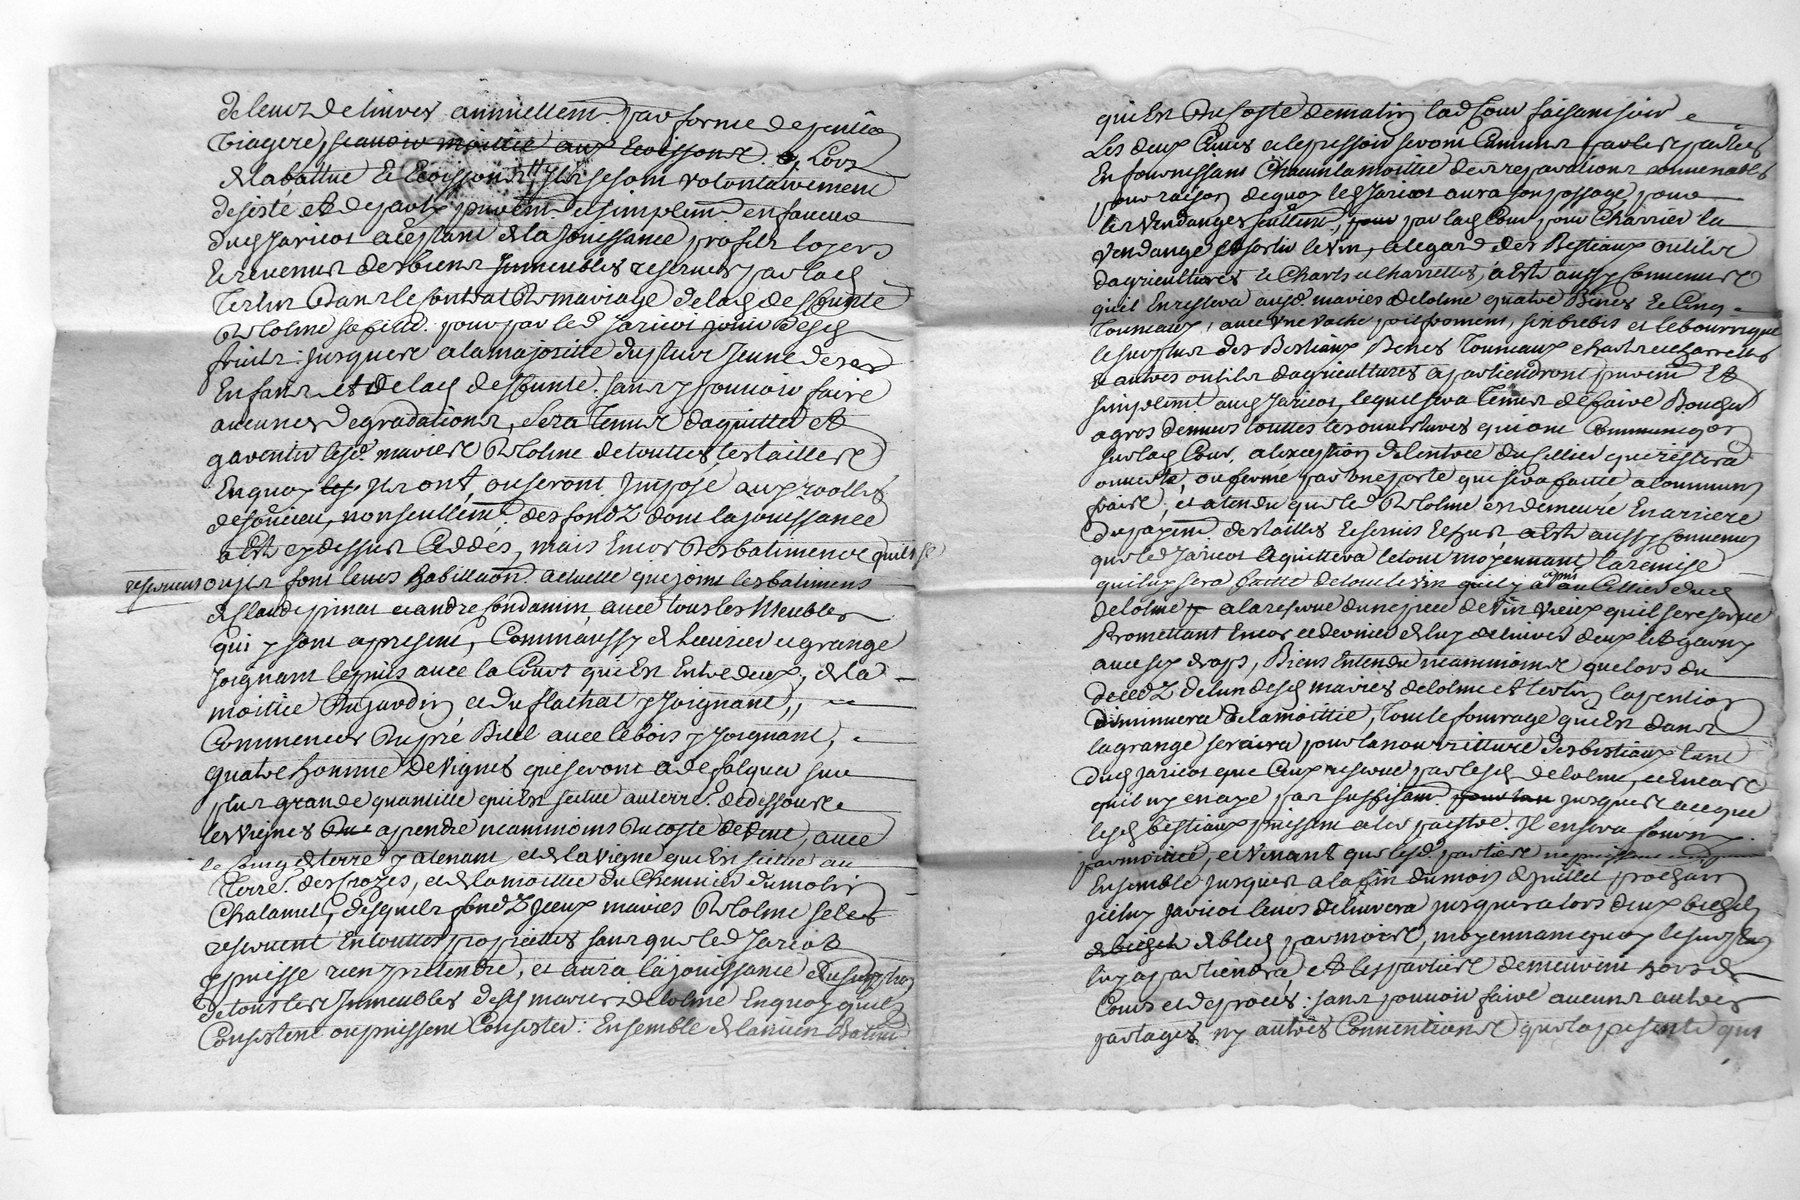 de leurs delivrer annuellem.^t par forme de pention
viagere, scavoir moittié aux Ecossons. Lors
de la battue Et Ecossons, Ils se sont volontairement
desiste et departy purem.^t et simplem.^t en faveur
dud Jaricot aceptant de la Jouissance profits loyers
Et revenus des biens Immeubles reservés par lad
Terlin Dans le Contrat de mariage de lad defunte
Delolme sa fille. pour par led Jaricot jouir desd
fruits jusques a la majorité du plus Jeune de ses
Enfans et de lad defunte. sans y pouvoir faire
aucunes degradations, Sera Tenus d'aquitter et
garentir lesd. mariés Delolme de touttes les tailles
Enquoy Ils ont, ou seront Imposé aux roolles
nonseullem.^t des fondZ dont la jouissance
a Esté cy dessus Ceddés, mais Encor des batimens qu'ils se
reservent ou Ils font leurs habittaôn actuelle que joint les batimens
de Claude pinat et andre fondanin, avec tous les Meubles
qui y sont apresent, Comm'aussy de l'ecurie et grange
Joignant le puis avec la Court qui Est Entre deux, de la
moittié Du jardin et du flachat y Joignant,
Commencer Du pré Biel avec le bois y Joignant,
quatre homme De Vignes qui seront a defalquer sur
plus grande quantitté qui Est scitue au terre.^r de dessous
les Vignes a prendre neammoins Du costé de vent, avec
le de terre y atenant, et de la vigne qui Est scittue au
Terre.^r des Crozes, et de la moittié du Chemnier du molin
Chalamel, desquels fondZ jceux mariés Delolme se les
reservent En touttes proprietés sans que led Jaricot
y puisse rien pretendre, et aura la jouissance du surplus
de tous les Immeubles desd mariés delolme Enquoy qu'ils
Consistent ou puissent Consister: Ensemble de l'ancien Batim.^t
qui Est Du costé de matin lad Cour faisant soir
Les deux Cuves et le pressoir seront Commun par les parties
En fournissant Chacun la moittié des reparations convenables
pour raison de quoy led Jaricot aura son passage pour
les Vendanges seullem.^t, par lad Cour pour Charrier la
Vendange et sortir le vin, a legard des Bestiaux outils
d'agricultures et Charts et Charrettes, a Esté aussy Convenus
qu'il En restera ausd. mariés delolme quatre Bênes et Cinq
Tonneaux, avec une vache poil froment, six brebis et le bourrique
le surplus des Bestiaux Benes Tonneaux charts et charrettes
et autres outils d'agricultures apartiendront purem.^t Et
simplem.^t aud Jaricot, lequel sera Tenus de faire Boucher
a gros de murs touttes les ouvertures qui ont Communiqôn
sur lad Cour, a l'exception de l'entrée du sellier qui restera
ouverte, ou fermé par une porte qui sera faitte a communs
fraix, et atendu que led Delolme est demeuré En arriere
du payem.^t des tailles a Esté aussy Convenus
que led Jaricot aquittera le tout moyennant la remise
qui luy sera faitte de tout le vin qu'il y a apnt au Cellier dud
delolme a la reserve d'une piece de vin vieux qu'il se reserve
Promettant Encor ce dernier de luy delivrer deux lits garny
avec six draps, Biens Entendu neammoins que lors du
decedZ de lun desd mariés delolme et terlin la pention
diminuera de la moittié, Tout le fourrage qui Est dans
la grange servira pour la nourritture des bestiaux tant
dud Jaricot que Ceux reservé par lesd delolme, et En cas
qu'il ny en aye pas suffisam.^t jusques a ce que
lesd bestiaux puissent aler paistre. Il en sera fourny
par moittié, et vivant que lesd. parties
Ensemble jusques a la fin du mois de juillet prochain
jceluy Jaricot leurs delivrera jusqu'alors deux bichets
de bled par mois, moyennant quoy le surplus
luy apartiendra, et les parties demeurent hors de
Cours et de procès: sans pouvoir faire aucuns autres
partages ny autres Conventions que la presente qui